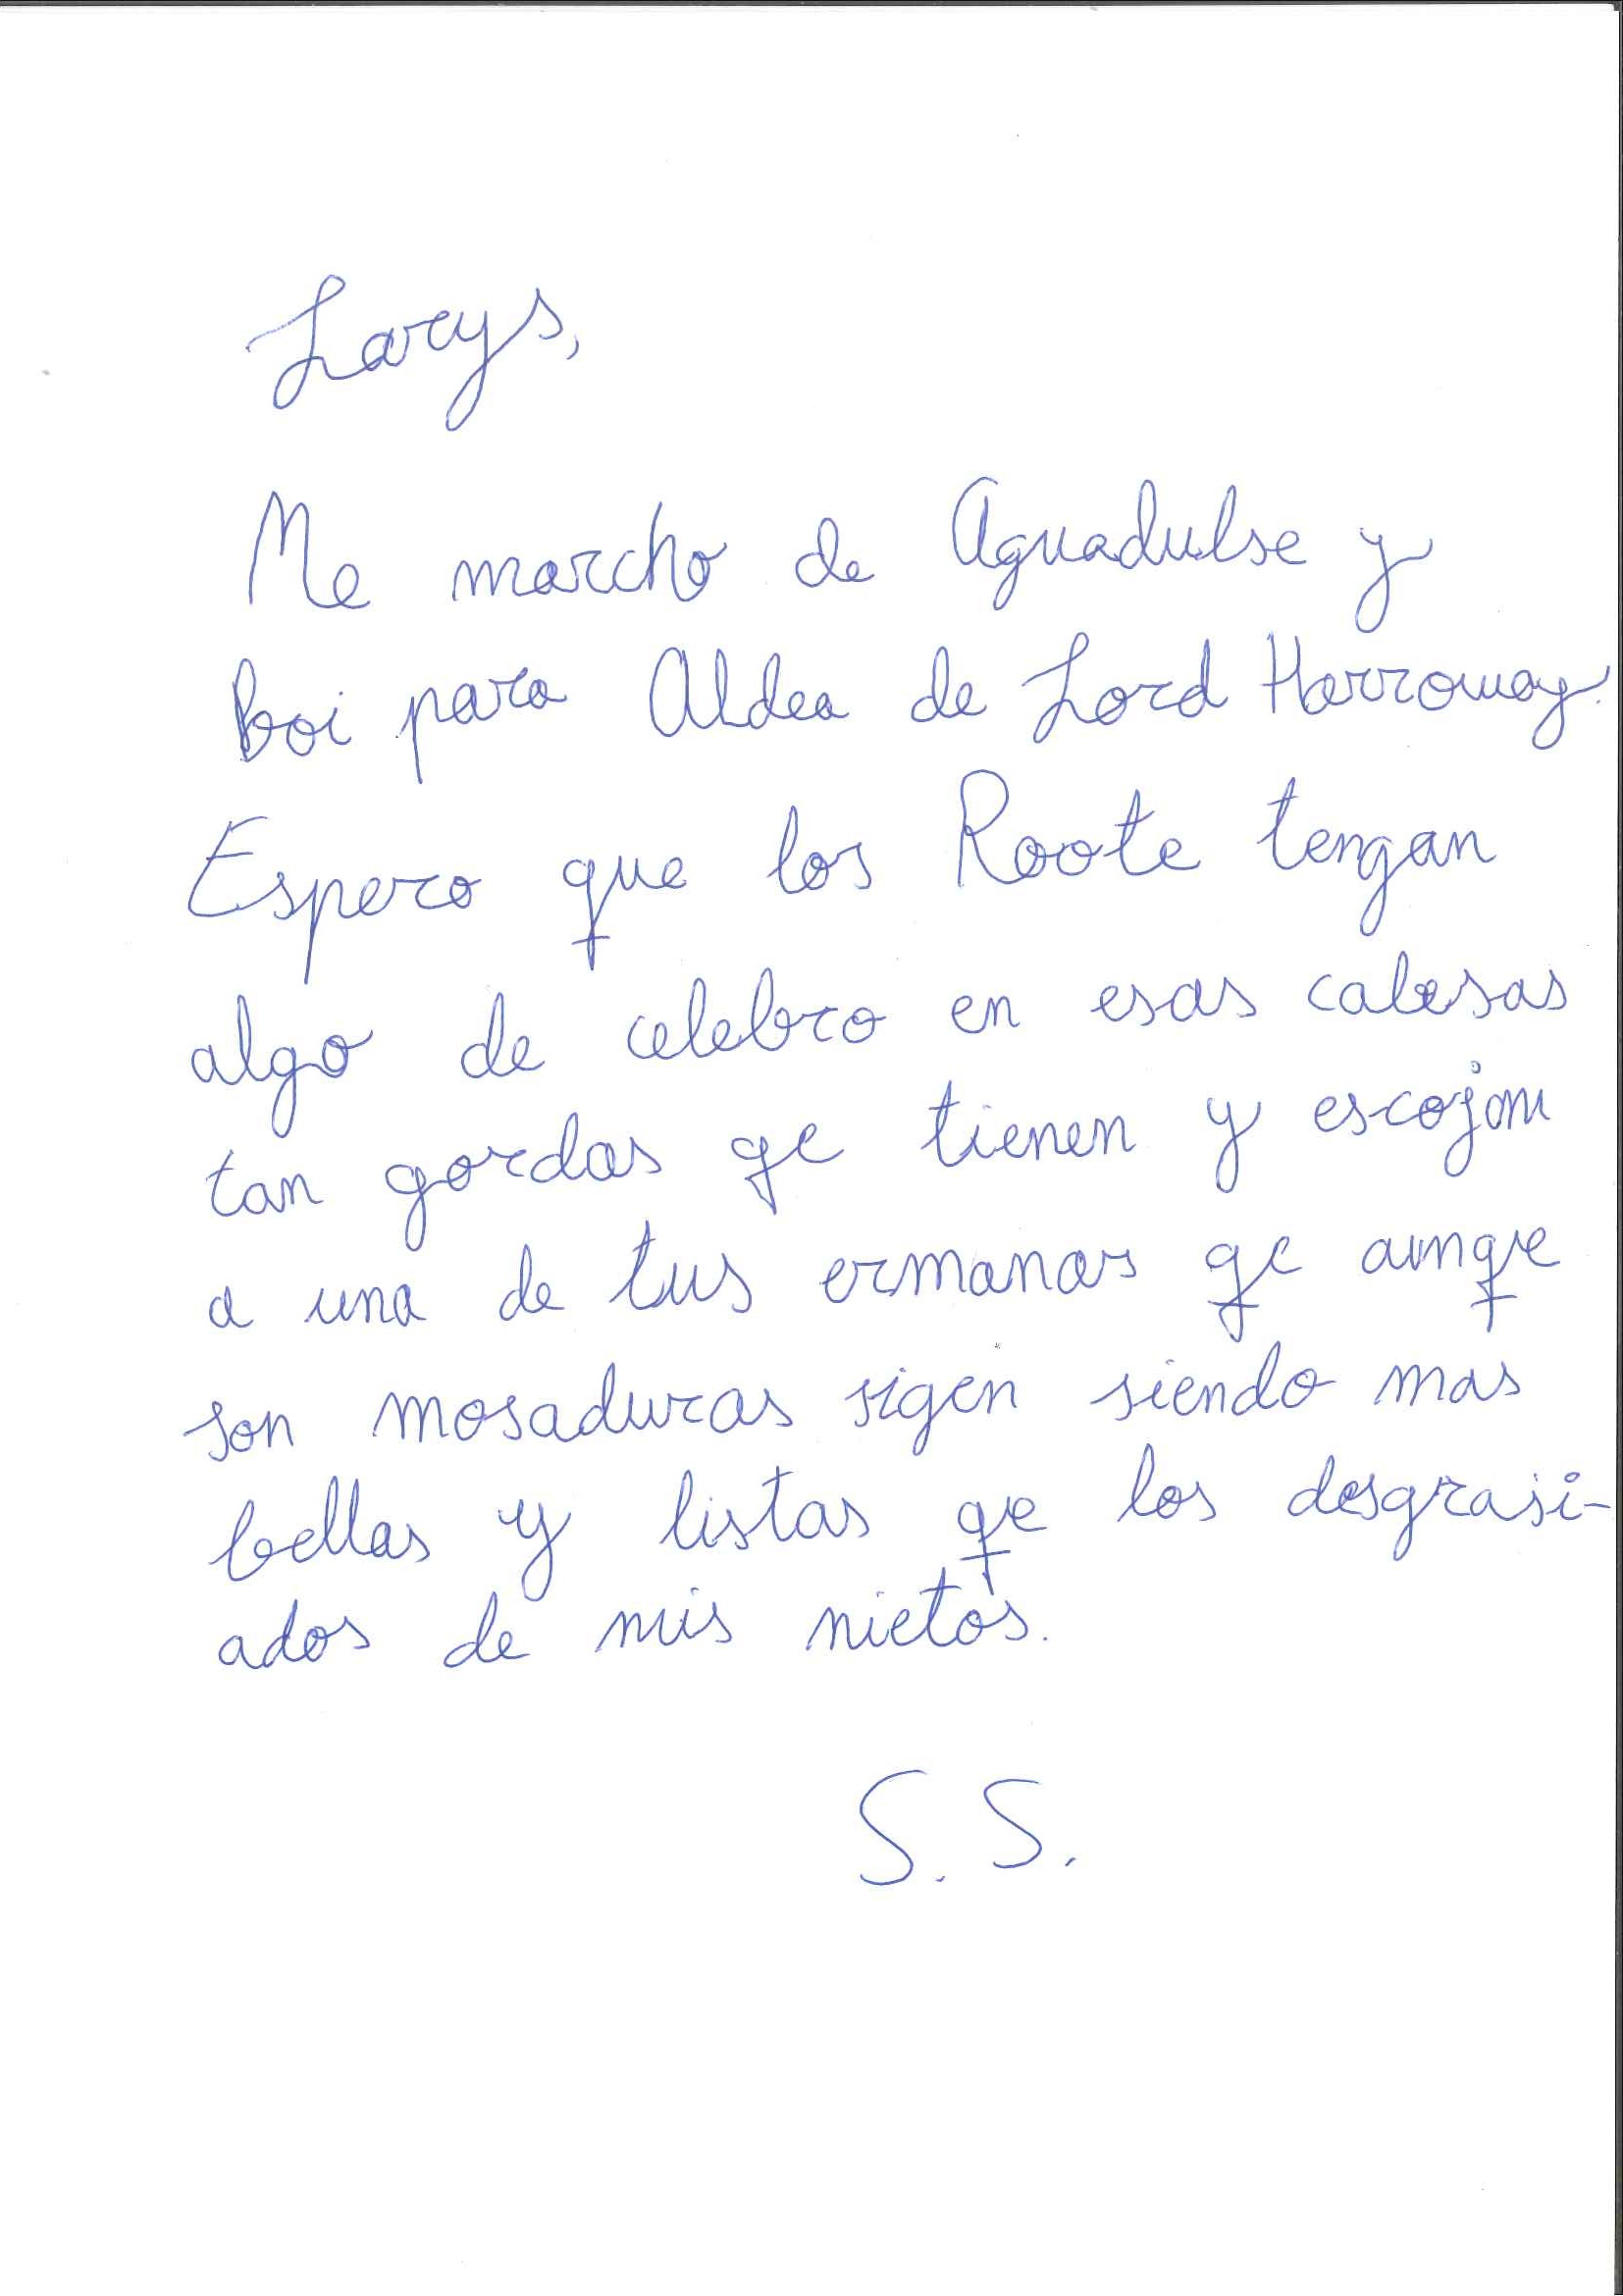 Larys,
Me marcho de Aguadulse y
boi para Aldea de Lord Harroway.
Espero que los Roote tengan
algo de celebro en esas cabesas
tan gordas qe tienen y escojan
a una de tus ermanas qe aunqe
son mosaduras sigen siendo mas
bellas y listas qe los desgrasi-
ados de mis nietos.
S. S.